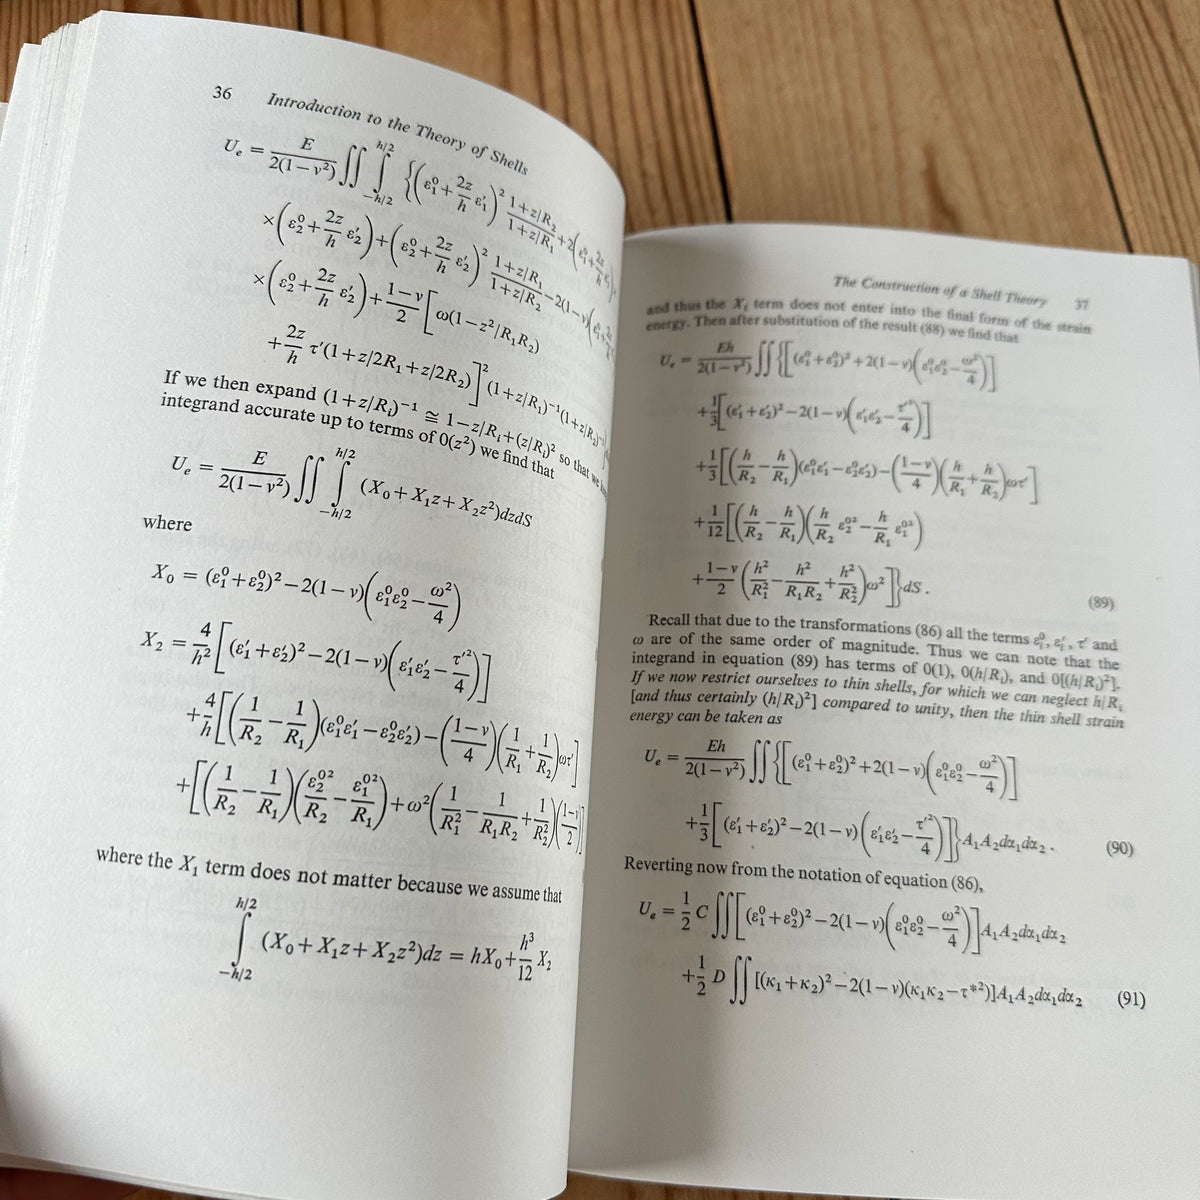 36 Introduction to the Theory of Shells
U_e = E/2(1−ν²) ∬ ∫_{−h/2}^{h/2} {(ε₁⁰ + 2z/h ε₁′)² 1+z/R₂ / 1+z/R₁ + 2(ε₁⁰ + 2z/h
×(ε₂⁰ + 2z/h ε₂′) + (ε₂⁰ + 2z/h ε₂′)² 1+z/R₁ / 1+z/R₂ − 2(1−ν)(ε₁⁰ +
×(ε₂⁰ + 2z/h ε₂′) + 1−ν/2 [ω(1−z²/R₁R₂)
+ 2z/h τ′(1+z/2R₁+z/2R₂)]² (1+z/R₁)⁻¹(1+z/R₂)⁻¹
If we then expand (1+z/Rᵢ)⁻¹ ≅ 1−z/Rᵢ+(z/Rᵢ)² so that we
integrand accurate up to terms of 0(z²) we find that
U_e = E/2(1−ν²) ∬ ∫_{−h/2}^{h/2} (X₀+X₁z+X₂z²)dzdS
where
X₀ = (ε₁⁰+ε₂⁰)²−2(1−ν)(ε₁⁰ε₂⁰ − ω²/4)
X₂ = 4/h² [(ε₁′+ε₂′)²−2(1−ν)(ε₁′ε₂′ − τ′²/4)]
+ 4/h [(1/R₂ − 1/R₁)(ε₁⁰ε₁′−ε₂⁰ε₂′)−(1−ν/4)(1/R₁ + 1/R₂)ωτ′]
+[(1/R₂ − 1/R₁)(ε₂⁰²/R₂ − ε₁⁰²/R₁)+ω²(1/R₁² − 1/R₁R₂ + 1/R₂²)(1−ν/2)]
where the X₁ term does not matter because we assume that
∫_{−h/2}^{h/2} (X₀+X₁z+X₂z²)dz = hX₀+ h³/12 X₂
The Construction of a Shell Theory 37
and thus the X₁ term does not enter into the final form of the strain
energy. Then after substitution of the result (88) we find that
U_e = Eh/2(1−ν²) ∬ {[(ε₁⁰+ε₂⁰)²+2(1−ν)(ε₁⁰ε₂⁰ − ω²/4)]
+ 1/3 [(ε₁′+ε₂′)²−2(1−ν)(ε₁′ε₂′ − τ′²/4)]
+ 1/3 [(h/R₂ − h/R₁)(ε₁⁰ε₁′−ε₂⁰ε₂′)−(1−ν/4)(h/R₁ + h/R₂)ωτ′]
+ 1/12 [(h/R₂ − h/R₁)(h/R₂ ε₂⁰² − h/R₁ ε₁⁰²)
+ 1−ν/2 (h²/R₁² − h²/R₁R₂ + h²/R₂²)ω²]}dS. (89)
Recall that due to the transformations (86) all the terms εᵢ⁰, εᵢ′, τ′ and
ω are of the same order of magnitude. Thus we can note that the
integrand in equation (89) has terms of 0(1), 0(h/Rᵢ), and 0[(h/Rᵢ)²].
If we now restrict ourselves to thin shells, for which we can neglect h/Rᵢ
[and thus certainly (h/Rᵢ)²] compared to unity, then the thin shell strain
energy can be taken as
U_e = Eh/2(1−ν²) ∬ {[(ε₁⁰+ε₂⁰)²+2(1−ν)(ε₁⁰ε₂⁰ − ω²/4)]
+ 1/3 [(ε₁′+ε₂′)²−2(1−ν)(ε₁′ε₂′ − τ′²/4)]}A₁A₂dα₁dα₂. (90)
Reverting now from the notation of equation (86),
U_e = 1/2 C ∬[(ε₁⁰+ε₂⁰)²−2(1−ν)(ε₁⁰ε₂⁰ − ω²/4)]A₁A₂dα₁dα₂
+ 1/2 D ∬ [(κ₁+κ₂)²−2(1−ν)(κ₁κ₂−τ*²)]A₁A₂dα₁dα₂ (91)